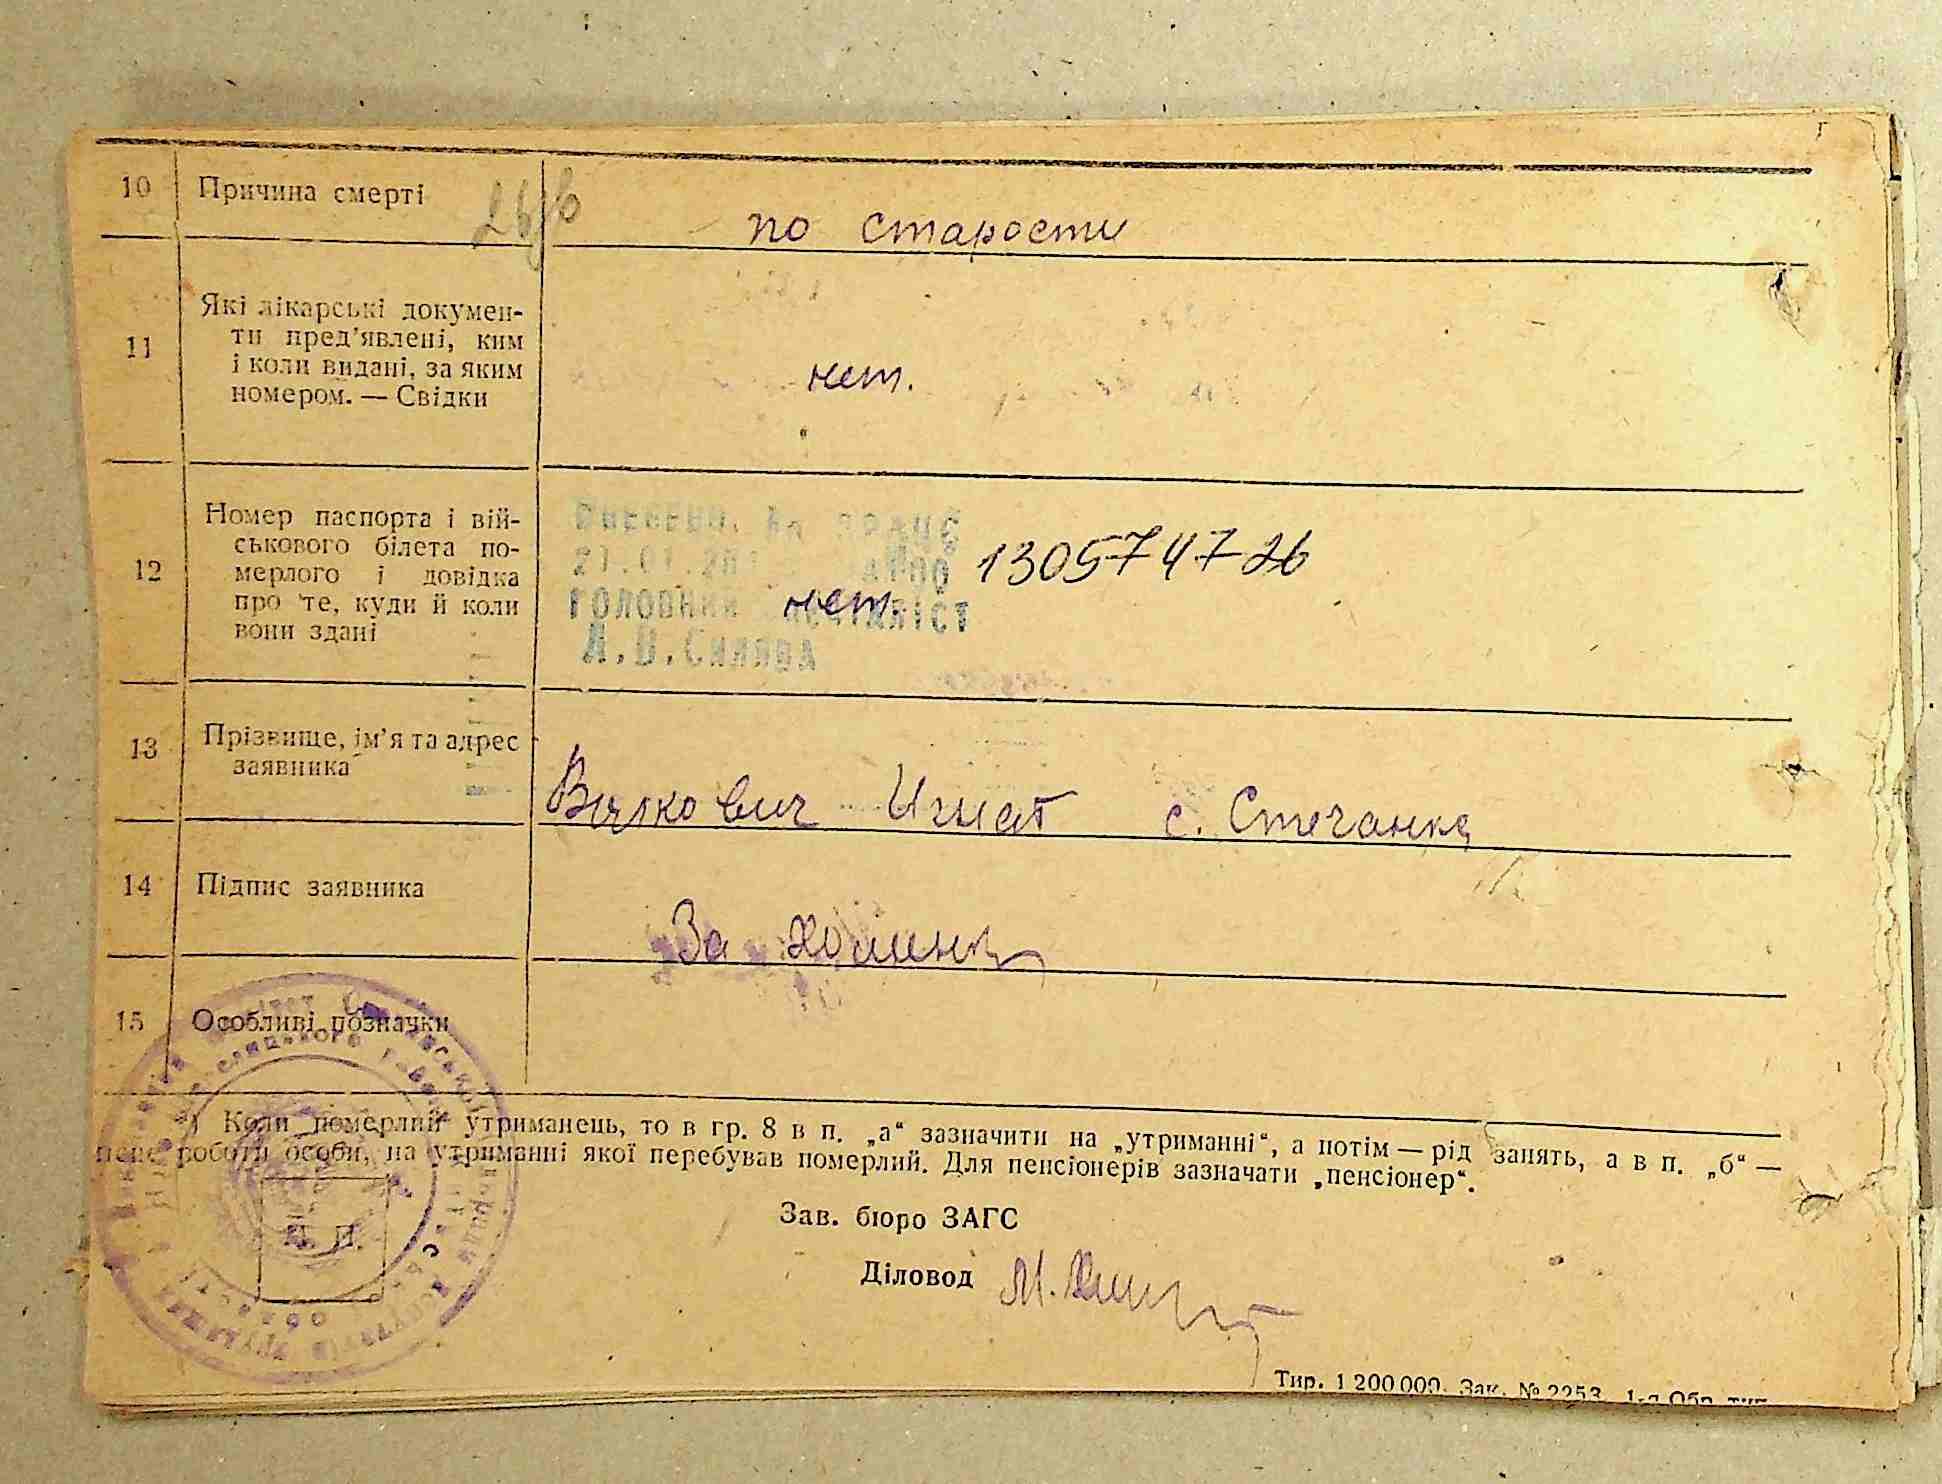 10 Причина смерті
по старости
11 Які лікарські докумен-
ти пред'явлені, ким
і коли видані, за яким
номером. — Свідки
нет.
12 Номер паспорта і вій-
ськового білета по-
мерлого і довідка
про те, куди й коли
вони здані
130574726
ГОЛОВНИЙ СПЕЦІАЛІСТ
нет.
13 Прізвище, ім'я та адрес
заявника
Вялкович Игнат с. Стечанка
14 Підпис заявника
За
15 Особливі позначки
Коли померлий утриманець, то в гр. 8 в п. „а“ зазначити на „утриманні“, а потім — рід занять, а в п. „б“ —
роботи особи, на утриманні якої перебував померлий. Для пенсіонерів зазначати „пенсіонер“.
Зав. бюро ЗАГС
Діловод М.
Тир. 1 200 000. Зак. № 2253